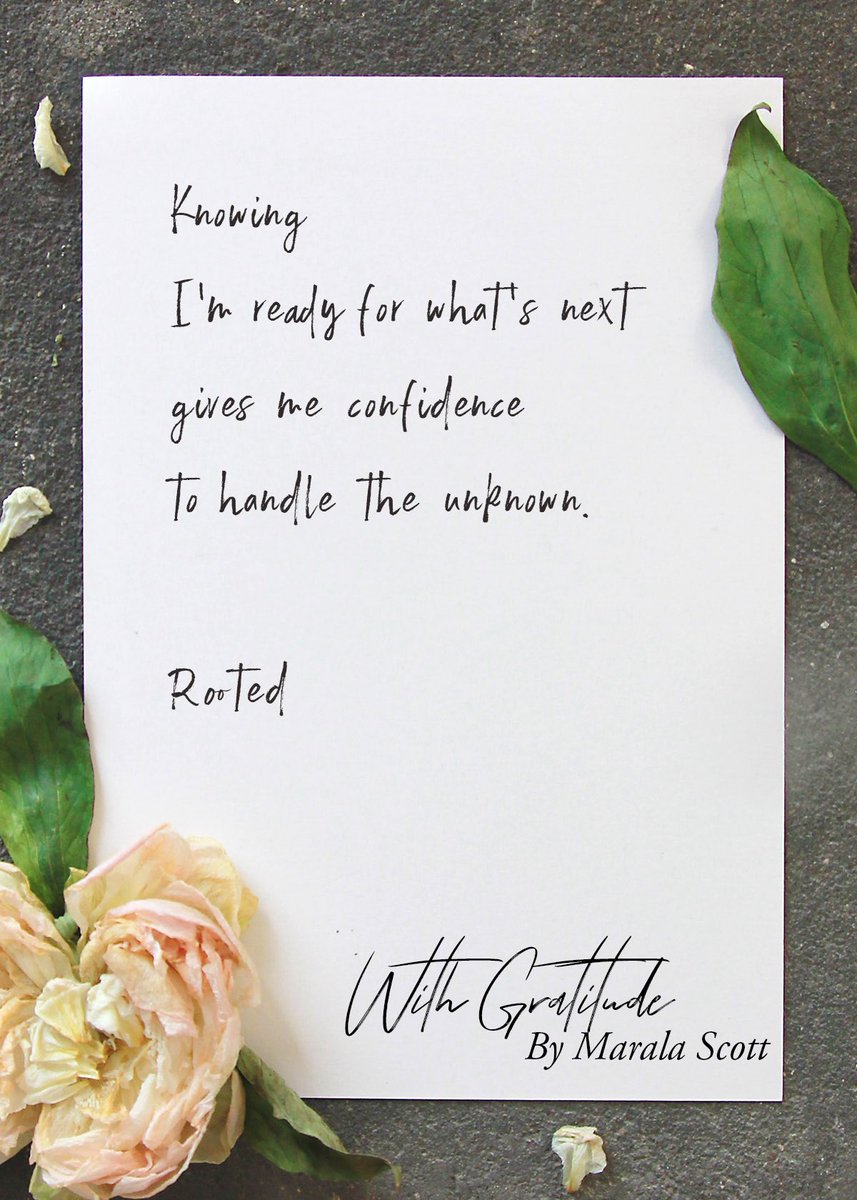 Knowing
I'm ready for what's next
gives me confidence
to handle the unknown.
Rooted
With Gratitude
By Marala Scott